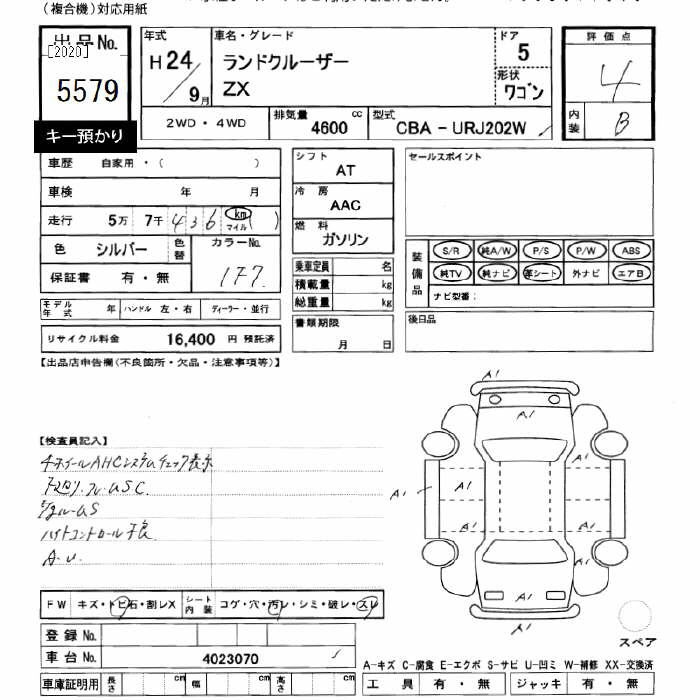 (複合機)対応用紙
出品No.
[2020]
5579
キー預かり
年式
H24/9月
車名・グレード
ランドクルーザー
ZX
ドア
5
形状
ワゴン
評価点
4
内装
B
2WD・4WD
排気量 4600 cc
型式 CBA-URJ202W
車歴 自家用・( )
車検 年 月
走行 5万 7千 436 km マイル ( )
色 シルバー 色替 カラーNo. 177
保証書 有・無
モデル年式 年 ハンドル 左・右 ディーラー・並行
リサイクル料金 16,400 円 預託済
シフト
AT
冷房
AAC
燃料
ガソリン
乗車定員 名
積載量 kg
総重量 kg
書類期限
月 日
セールスポイント
装備品
S/R 純A/W P/S P/W ABS
純TV 純ナビ 革シート 外ナビ エアB
ナビ型番:
後日品
【出品店申告欄(不良箇所・欠品・注意事項等)】
【検査員記入】
AHCシステムチェック表示
ハイトコントロール不良
A.U.
A1
A1
A1
A1
A1
A1
A1
A1
A1
A1
スペア
FW キズ・トビ石・割レX シート内装 コゲ・穴・汚レ・シミ・破レ・スレ
登録No.
車台No. 4023070
車庫証明用 長さ cm 幅 cm 高さ cm
A-キズ C-腐食 E-エクボ S-サビ U-凹ミ W-補修 XX-交換済
工具 有・無 ジャッキ 有・無